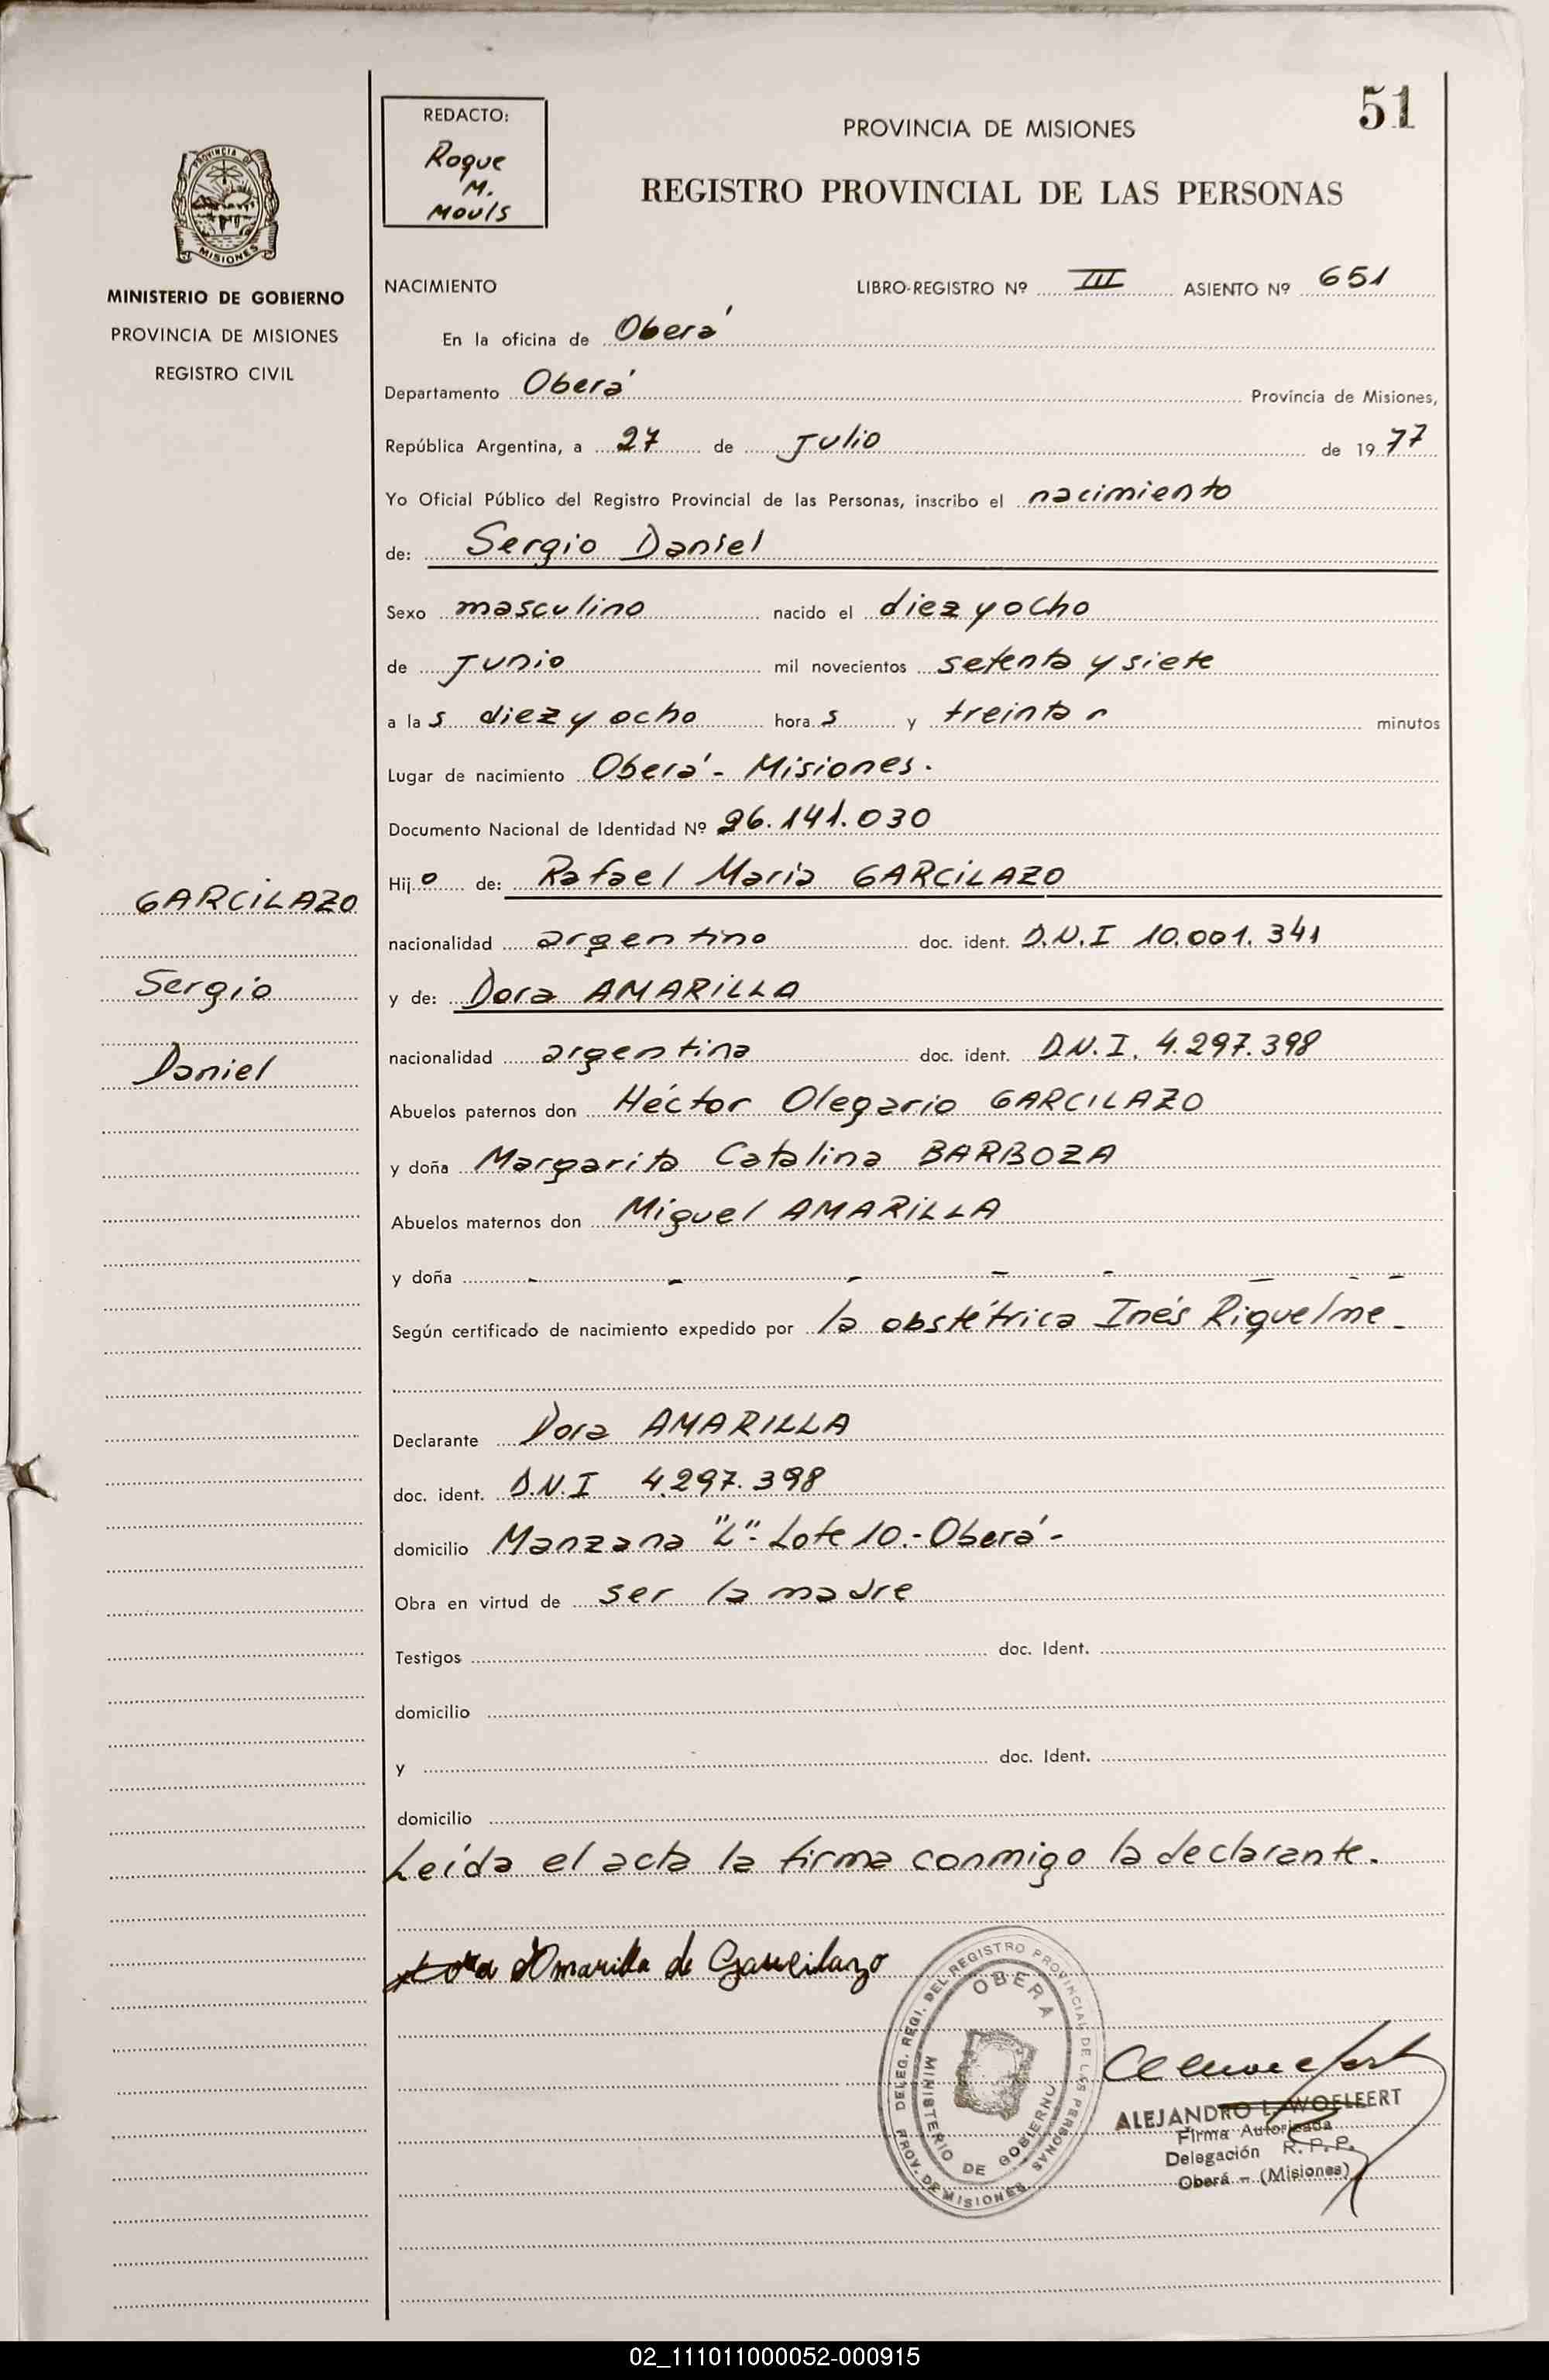 51
REDACTO:
Roque
M.
Mouls
PROVINCIA DE MISIONES
REGISTRO PROVINCIAL DE LAS PERSONAS
PROVINCIA DE
MISIONES
MINISTERIO DE GOBIERNO
PROVINCIA DE MISIONES
REGISTRO CIVIL
NACIMIENTO LIBRO-REGISTRO Nº III ASIENTO Nº 651
En la oficina de Oberá
Departamento Oberá Provincia de Misiones,
República Argentina, a 27 de Julio de 1977
Yo Oficial Público del Registro Provincial de las Personas, inscribo el nacimiento
de: Sergio Daniel
Sexo masculino nacido el diez y ocho
de Junio mil novecientos setenta y siete
a las diez y ocho horas y treinta minutos
Lugar de nacimiento Oberá - Misiones.
Documento Nacional de Identidad Nº 26.141.030
Hijo de: Rafael Maria GARCILAZO
nacionalidad argentino doc. ident. D.N.I 10.001.341
y de: Dora AMARILLA
nacionalidad argentina doc. ident. D.N.I. 4.297.398
Abuelos paternos don Héctor Olegario GARCILAZO
y doña Margarita Catalina BARBOZA
Abuelos maternos don Miguel AMARILLA
y doña - - - - - - - -
Según certificado de nacimiento expedido por la obstétrica Inés Riquelme -
Declarante Dora AMARILLA
doc. ident. D.N.I 4.297.398
domicilio Manzana "L"- Lote 10.- Oberá -
Obra en virtud de ser la madre
Testigos doc. Ident.
domicilio
y doc. Ident.
domicilio
Leída el acta la firma conmigo la declarante.
GARCILAZO
Sergio
Daniel
Dora Amarilla de Garcilazo
DELEG. REGI. DEL REGISTRO PROVINCIAL DE LAS PERSONAS
PROV. DE MISIONES
OBERA
MINISTERIO DE GOBIERNO
ALEJANDRO L. WOELEERT
Firma Autorizada
Delegación R.P.P.
Oberá - (Misiones)
02_111011000052-000915